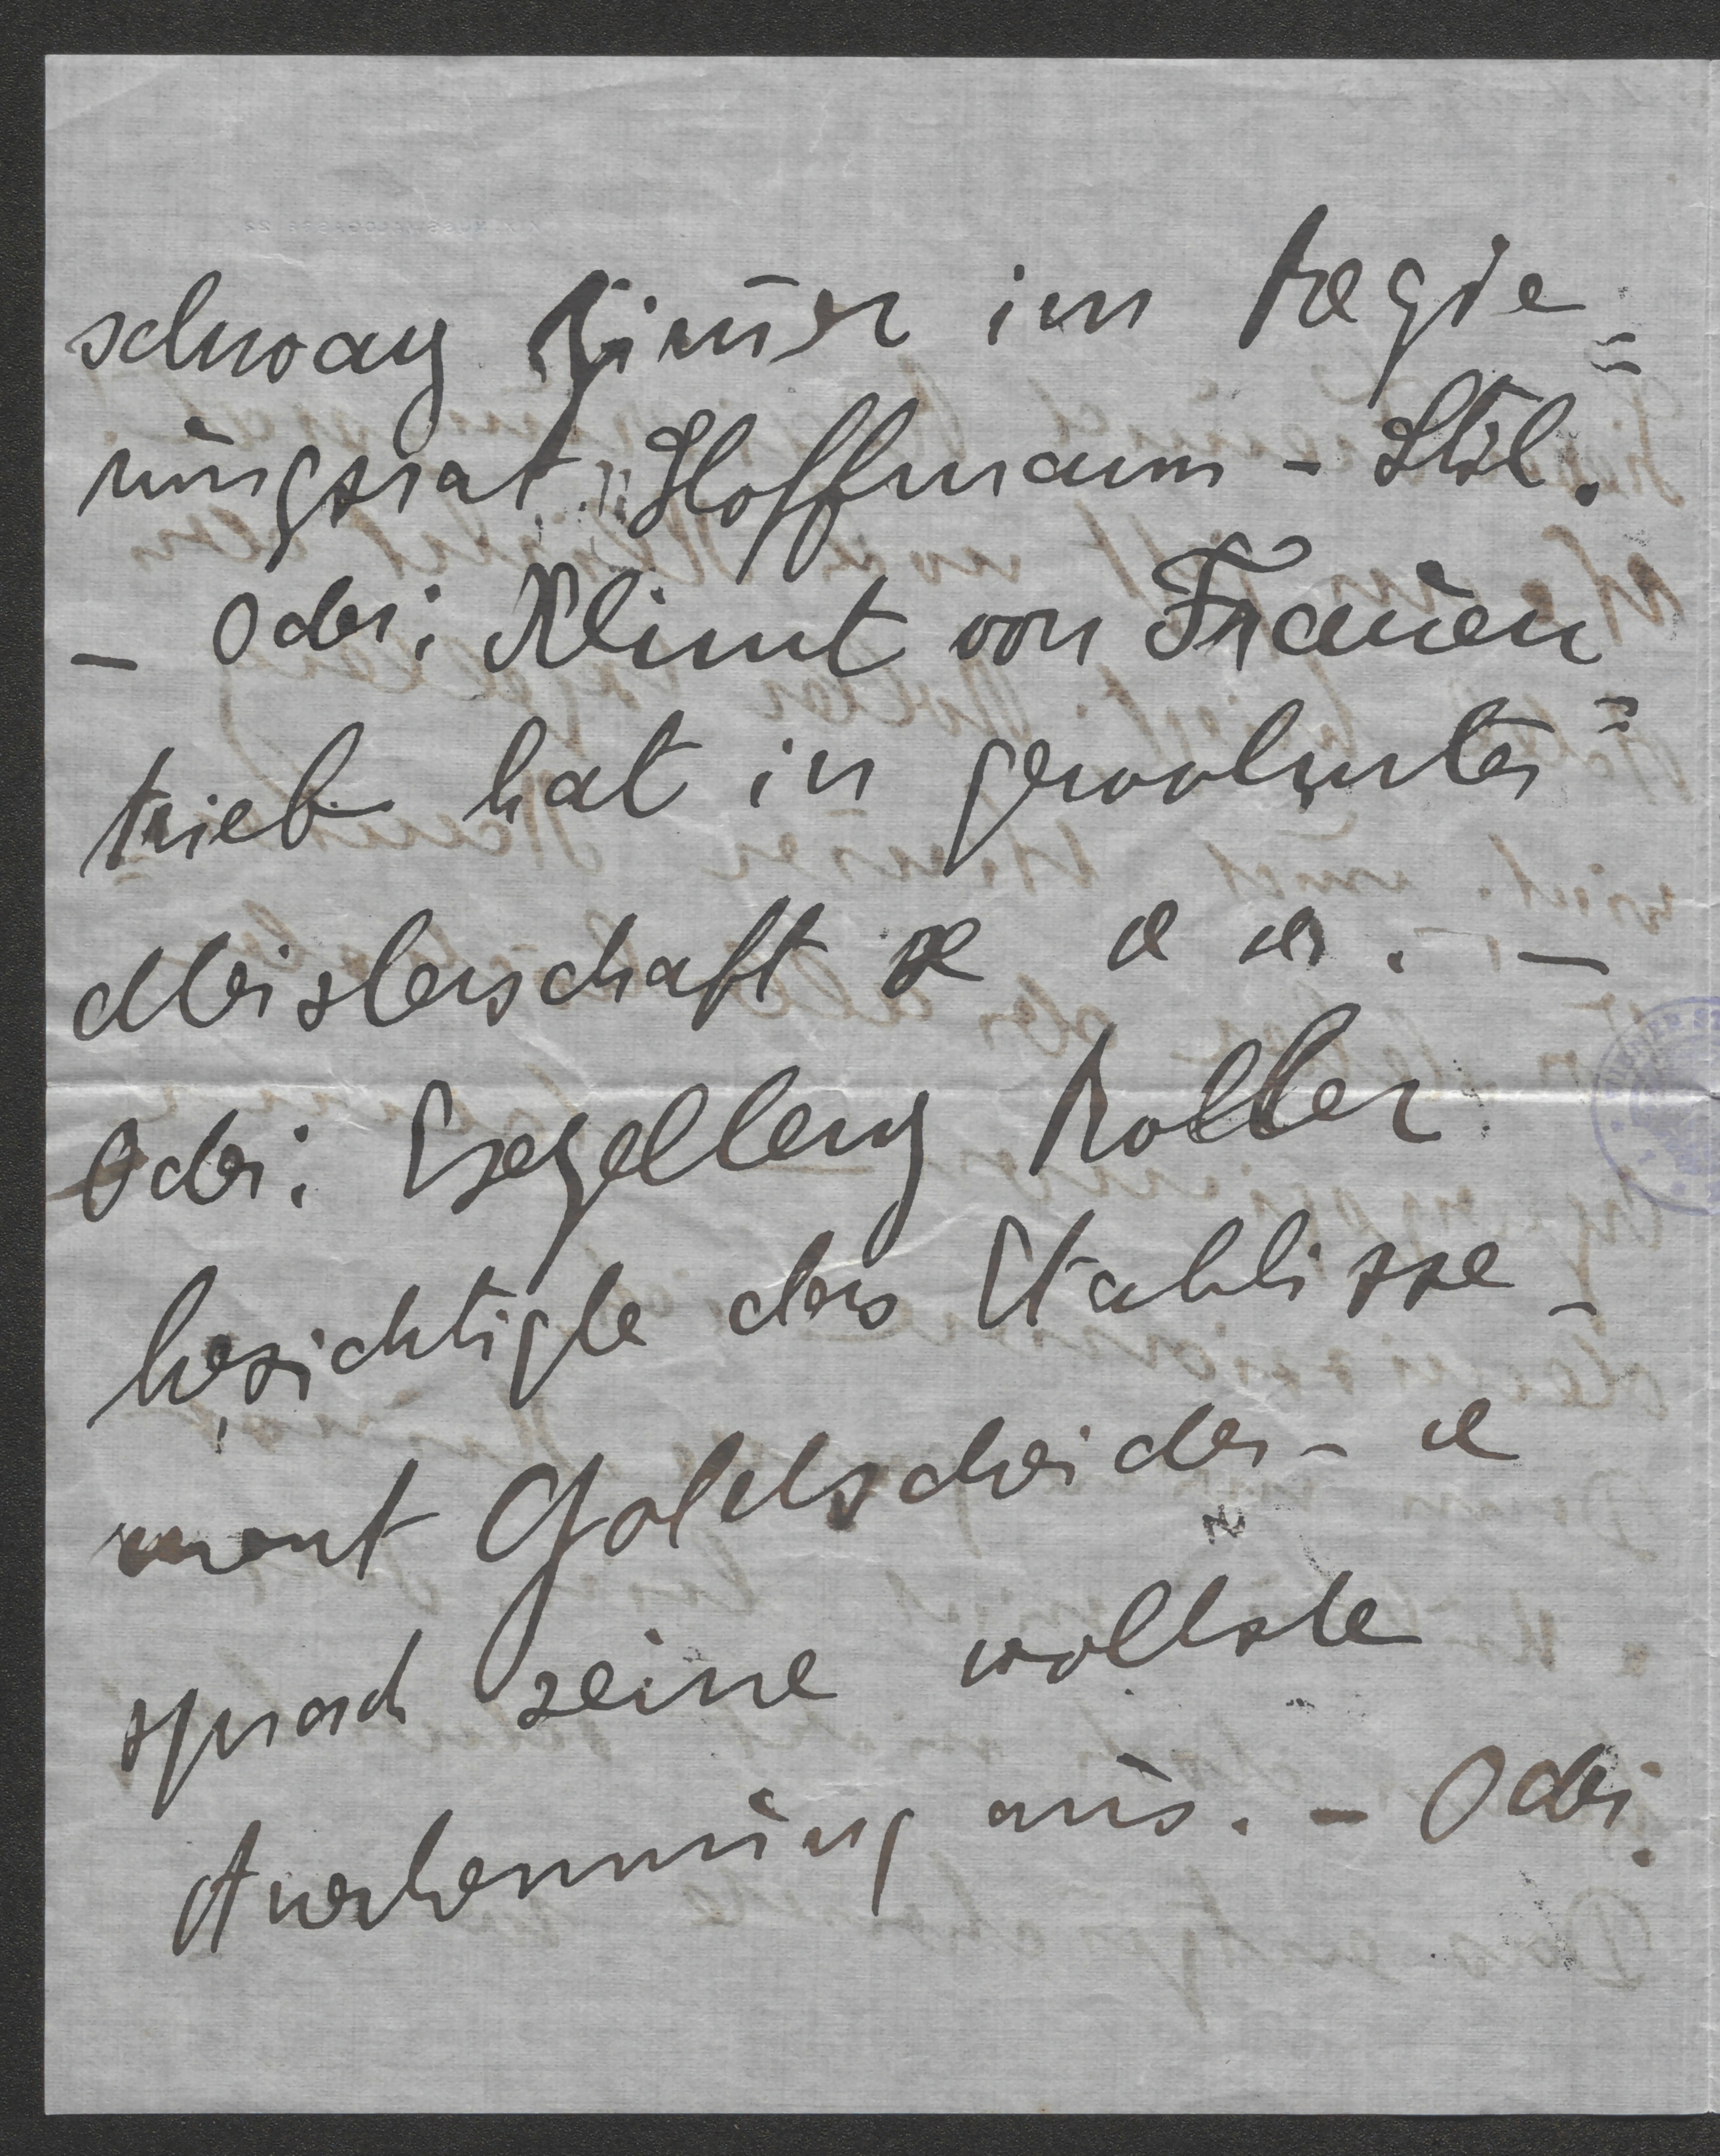 schwarz Zimer im Regie=
rungsrat Hoffmann - Stil.
- Oder: Klimt von Frauen=
trieb hat in gewohnter
Meisterschaft etc. -
Oder: Exzellenz Roller
besichtigte das Etablisse-
ment Goldscheider - u
sprach seine vollste
Anerkennung aus. - Oder: